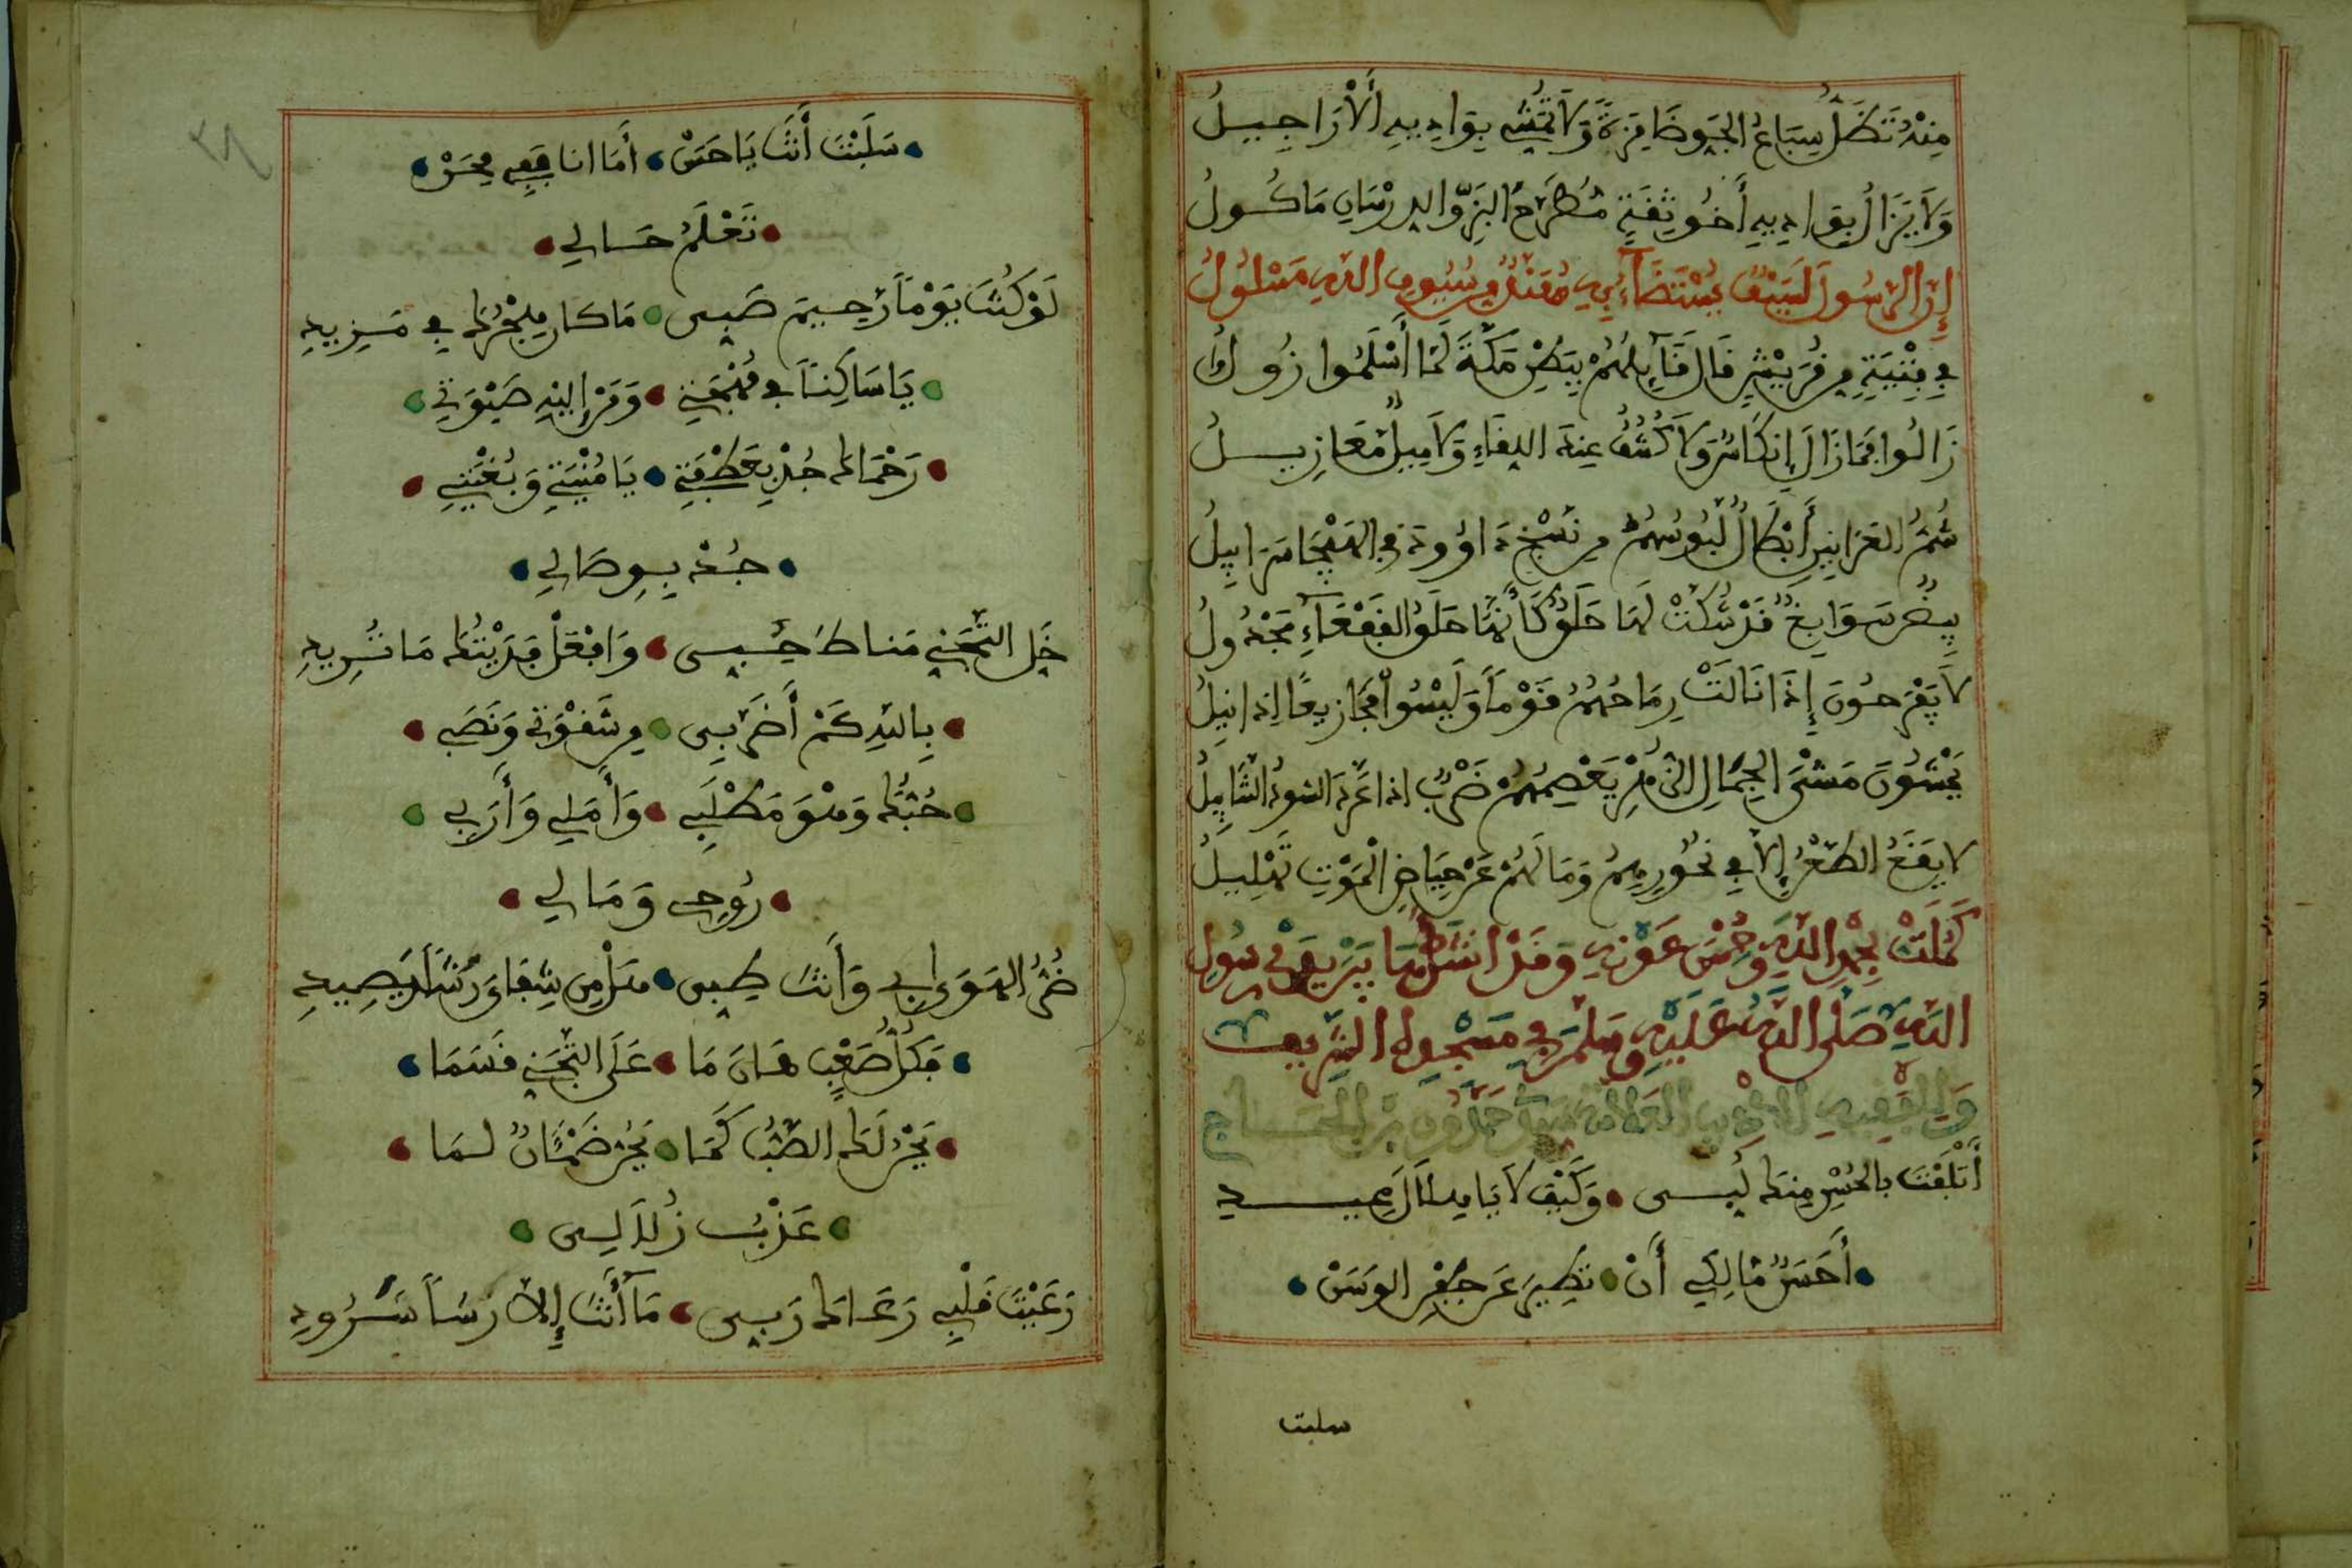 مِنْهُ تَظَلُّ سِبَاعُ الجَوِّ ضَامِزَةً وَلاَ تَمَشَّى بِوَادِيهِ الأَرَاجِيلُ
وَلاَ يَزَالُ بِوَادِيهِ أَخُو ثِقَةٍ مُطَرَّحُ البَزِّ وَالدِّرْسَانِ مَأكُولُ
إِنَّ الرَّسُولَ لَسَيْفٌ يُسْتَضَآءُ بِهِ مُهَنَّدٌ مِنْ سُيُوفِ اللَّهِ مَسْلُولُ
فِي فِتْيَةٍ مِنْ قُرَيْشٍ قَالَ قَآئِلُهُمْ بِبَطْنِ مَكَّةَ لَمَّا أَسْلَمُوا زُولُوا
زَالُوا فَمَا زَالَ إِنكَاسٌ وَلاَ كُشُفٌ عِندَ اللِّقَاءِ وَلاَ مِيلٌ مَعَازِيلُ
شُمُّ العَرَانِينِ أَبْطَالٌ لَّبُوسُهُمُ مِن نَسْجِ دَاوُودَ فِي الهَيْجَا سَرَابِيلُ
بِيضٌ سَوَابِغُ قَدْ شُكَّتْ لَهَا حَلَقٌ كَأَنَّهَا حَلَقُ القَفْعَآءِ مَجْدُولُ
لاَ يَفْرَحُونَ إِذَا نَالَتْ رِمَاحُهُمُ قَوْماً وَلَيْسُوا مَجَازِيعًا إِذَا نِيلُ
يَمْشُونَ مَشْىَ الجِمَالِ الزُّهْرِ يَعْصِمُهُمْ ضَرْبٌ اذا عَرَّدَ السُّودُ التَّنَابِيلُ
لا يَقَعُ الطَّعْنُ إِلاَّ فِي نُحُورِهِمُ وَمَا لَهُمْ عَنْ حِيَاضِ الْمَوْتِ تَهْلِيلُ
كَمُلَتْ بِحَمْدِ اللَّهِ وَحُسْنِ عَوْنِهِ وَقَدْ انشَدَهَا بَيْنَ يَدَيْ رَسُولِ
اللَّهِ صَلَّى اللَّهُ عَلَيْهِ وَسَلَّمَ فِي مَسْجِدِهِ الشَّرِيف
وَلِلْفَقِيهِ الادِيب العَلامة سيدي حَمْدُون بْن الحَــاج
أَتْلَفْتَ بالحُسْنِ مِنكَ لُبِّـي وَكَيْفَ لاَ يَا هِلاَلَ عِيــدِ
أَحَسَنٌ مَالِكِي أَنْ تُطِيرَ عَن جَفْنِ الوَسَنْ
سلبت
سَلَبْتَ أَنتَ يَا حَسَنْ أَمَا انا فِي مِحَنْ
تَعْلَمُ حَـالِي
لَوْ كُنتَ يَوْماً رَحِيمَ صَبٍّ مَا كَانَ هَجْرُكَ فِي مَـزِيدِ
يَا سَاكِناً فِي مُهْجَتِي وَمَنْ إِلَيْهِ صَبْوَتِي
رُحْمَاكَ جُدْ بِعَطْفَةِ يَا مُنْيَتِي وَبُغْيَتِي
جُـدْ بِـوِصَالِي
خَلِّ التَّجَنِّي مَنَاطَ حُبِّـى وَافْعَلْ فَدَيْتُكَ مَا تُـرِيدِ
بِاللَّهِ كَمْ أَضَرَّ بِى مِن شَقْوَتِي وَنَصَبِ
حُبُّكَ وَهْوَ مَطْلَبِي وَأَمَلِي وَأَرَبِي
رُوحِى وَمَـالِي
ضُرُّ الهَوَى بِى وَأَنتَ طِبِّى هَلْ مِن شِفَا وَرَشاً يَصِيدِ
فَكُلُّ صَعْبٍ هَـانَ مَا عَلَى التَّجَنِّي قَسَمَا
يَحِنُّ لَكَ الصَّبُّ كَمَا يَحِنُّ ضَمْئَانٌ لـمَا
عَذْبُ زُلاَلِـى
رَعَيْتَ قَلْبِي رَعَـاكَ رَبِّـى مَآ أَنتَ إِلاَّ رَشاً شَـرُودِ